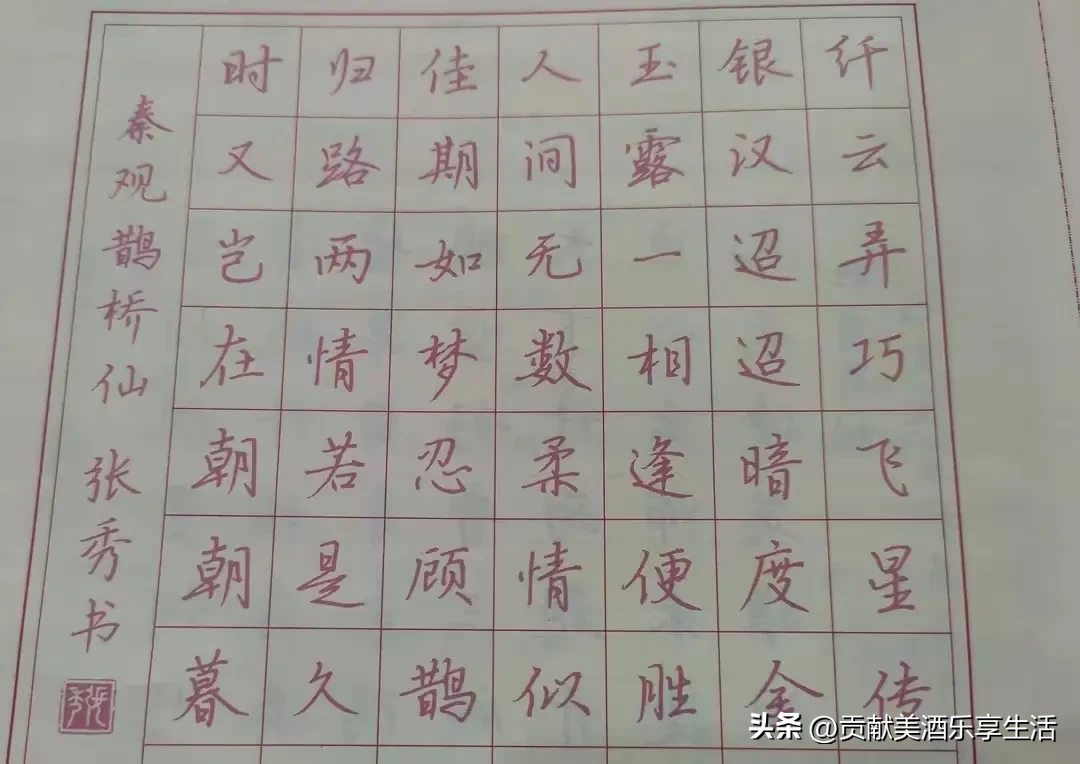 纤云弄巧飞星传
银汉迢迢暗度金
玉露一相逢便胜
人间无数柔情似
佳期如梦忍顾鹊
归路两情若是久
时又岂在朝朝暮
秦观鹊桥仙 张秀书
头条 @贡献美酒乐享生活